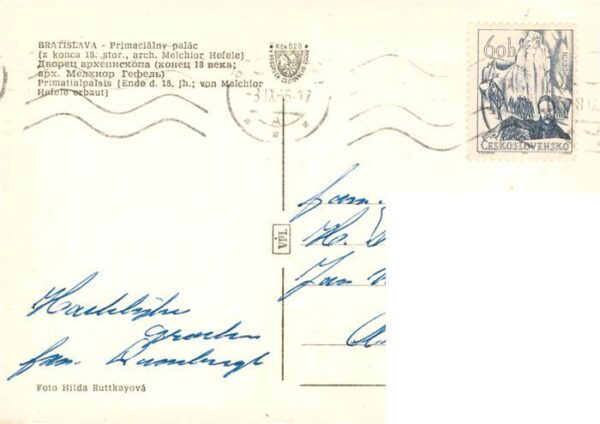 BRATISLAVA - Primaciálny palác
(z konca 18. stor., arch. Melchior Hefele)
Дворец архепископа (конец 18 века;
арх. Мелхиор Гефель)
Primatialpalais (Ende d. 18. jh.; von Melchior
Hefele erbaut)
Kčs 0,20
60h
ČESKOSLOVENSKO
fam.
H.
Jan
VPL
Hartelijke
groeten
fam.
Foto Hilda Ruttkayová